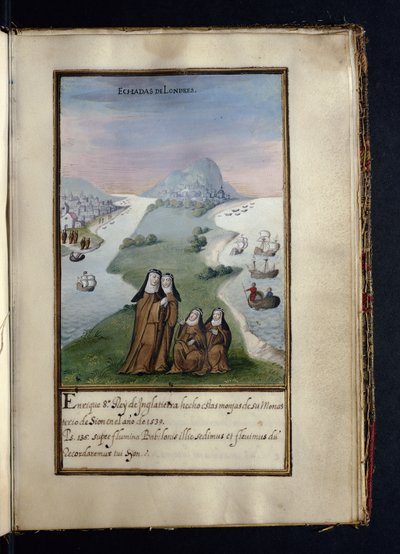 ECHADAS DE LONDRES.
Enrique 8º Rey de Inglatierra hecho estas monjas de su Monas
terio de Sion en el año de 1539.
Ps. 136. supre flumina Babilonis illic sedimus et flevimus dū
Recordaremur tui syon.